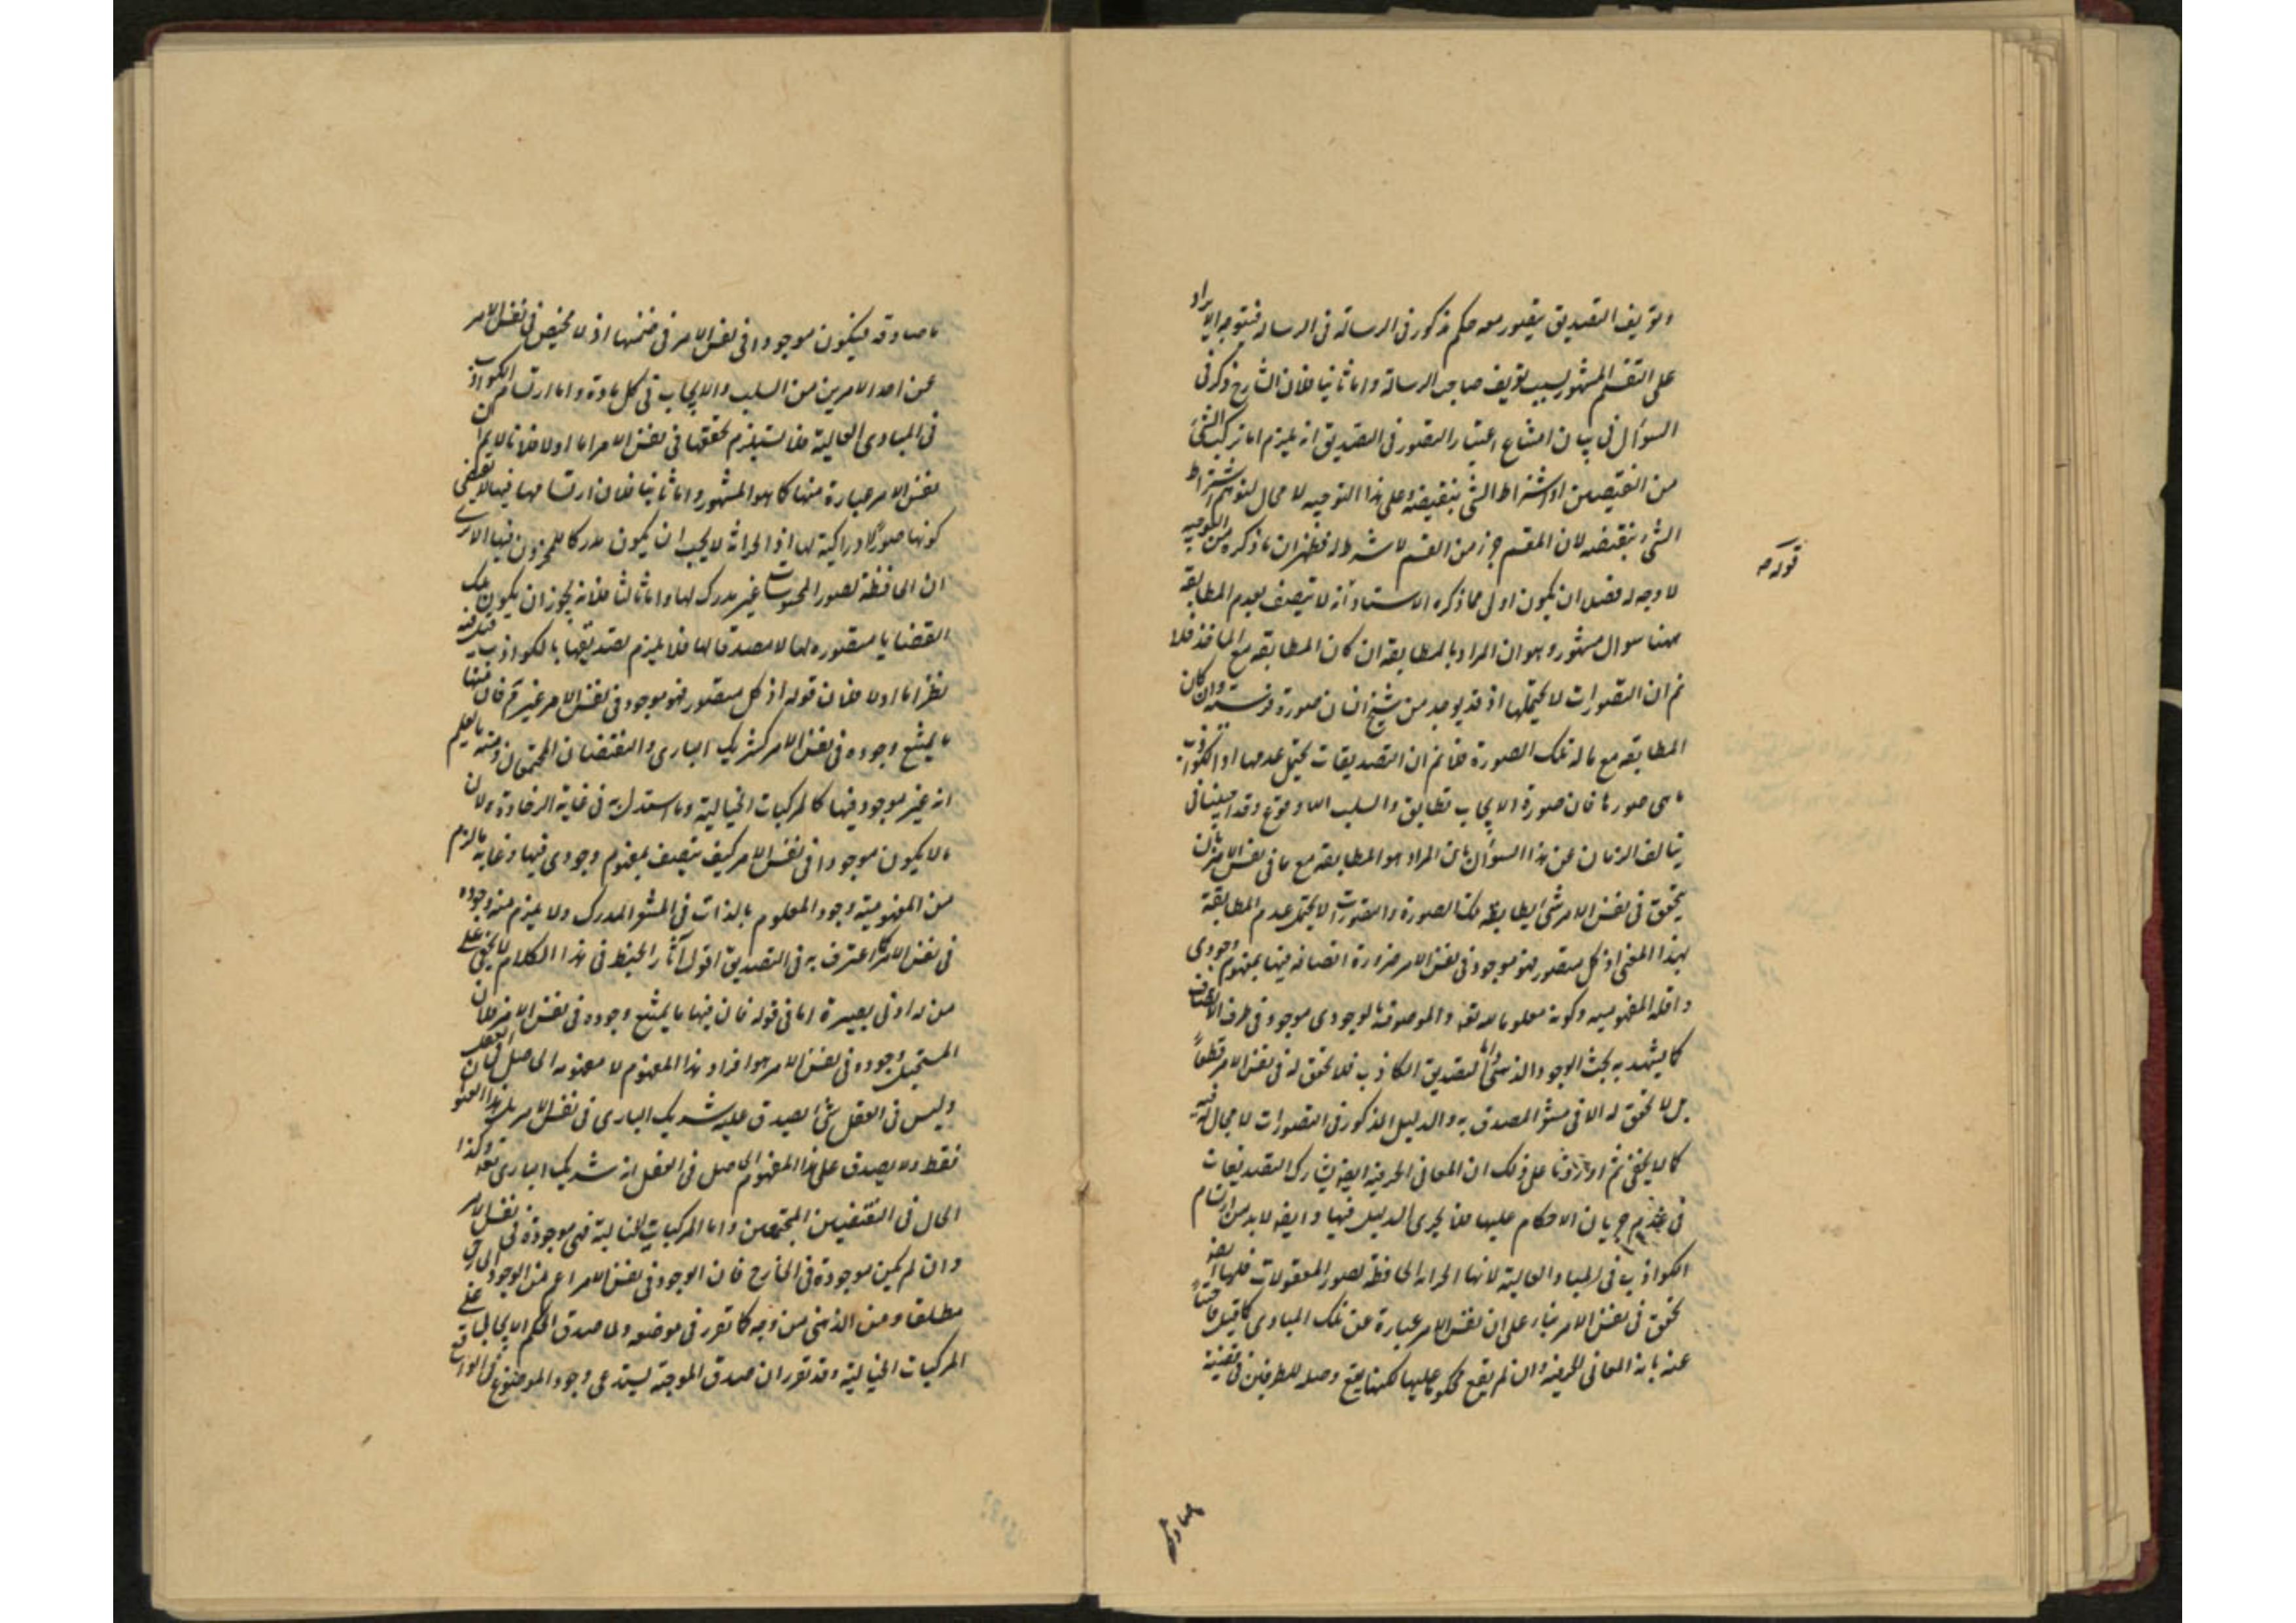 وتعريف التصديق بتصور معه حكم مذكور في الرسالة في الرسالة فيتوجه الايراد
على التقسيم المشهور بسبب تعريف صاحب الرسالة واما ثانيا فلان الشارح ذكر في
السؤال في بيان امتناع اعتبار التصور في التصديق انه يلزم اما تركب الشئ
من النقيضين او اشتراط الشئ بنقيضه وعلى هذا التوجيه لا مجال لتوهم اشتراط
الشئ بنقيضه لان المقسم جزء من القسم لا شرط له فظهر ان ما ذكره من التوجيه
لا وجه له فضلا ان يكون اولى مما ذكره الاستاد انه لا يتصف بعدم المطابقة
قوله
ههنا سوال مشهور وهو ان المراد بالمطابقة ان كان المطابقة مع الماخذ فلا
نم ان التصورات لا يحتملها اذ قد يوجد من شبح انسان صورة فرسه وان كان
المطابقة مع ما له تلك الصورة فلا نم ان التصديقات يحتمل عدمها اذ الكواذب
ما هي صور لها فان صورة الايجاب تطابق والسلب اللاوقوع وقد
سالف الزمان عن هذا السؤال بان المراد هو المطابقة مع ما في نفس الامر بان
يتحقق في نفس الامر شئ يطابقه تلك الصورة والتصورات لا يحتمل عدم المطابقة
بهذا المعنى اذ كل متصور فهو موجود في نفس الامر ضرورة اتصافه فيها بمفهوم وجودي
واقله المفهومية وكونه معلوما لله تعالى والموصوف بالوجودي موجود في ظرف الاتصاف
كما يشهد به بحث الوجود الذهني واما التصديق الكاذب فلا تحقق له في نفس الامر قطعاً
بل لا تحقق له الا في المصدق به والدليل المذكور في التصورات لا مجال له فيه
كما لا يخفى ثم اوردنا على ذلك ان المعاني الحرفية ايضا يشارك التصديقات
في عدم جريان الاحكام عليها فلا يجرى الدليل فيها وايضا لابد من ارتسام
الكواذب في المبادي العالية لانها الخزانة الحافظة لصور المعقولات فلها ايضا
تحقق في نفس الامر بناء على ان نفس الامر عبارة عن تلك المبادي كما قيل فاجبنا
عنه بان المعاني الحرفية وان لم يقع محكوما عليها لكنها يقع وصلة للطرفين في قضية
ما صادقة فيكون موجودا في نفس الامر في ضمنها اذ لا محيص في نفس الامر
عن احد الامرين من السلب والايجاب في كل مادة واما ارتسام الكواذب
في المبادي العالية فلا يستلزم تحققها في نفس الامر اما اولا فلانا لا نم ان
نفس الامر عبارة عنها كما هو المشهور واما ثانيا فلان ارتسامها فيها لا يقتضي
كونها صورا ادراكية لها اذ الخزانة لا يجب ان يكون مدركا للمخزون فيها الا ترى
ان الحافظة لصور المحسوسات غير مدرك لها واما ثالثا فلانه يجوز ان يكون تلك
القضايا متصوره لها لا مصدقا لها فلا يلزم تصديقها بالكواذب قيل فيه
نظر اما اولا فلان قوله اذ كل متصور فهو موجود في نفس الامر غير تم فان منها
ما يمتنع وجوده في نفس الامر كشريك الباري والنقيضان المجتمعان ومنه ما يعلم
انه غير موجود فيها كالمركبات الخيالية وما استدل به في غاية الرخاوة ولان
ما لا يكون موجودا في نفس الامر كيف يتصف بمفهوم وجودي فيها وغاية ما لزم
من المفهومية وجود المعلوم بالذات في المدرك ولا يلزم منه وجوده
في نفس الامر كما اعترف به في التصديق اقول آثار الخبط في هذا الكلام لا يخفى على
من له ادنى بصيرة اما في قوله فان فيها ما يمتنع وجوده في نفس الامر فلان
المستحيل وجوده في نفس الامر هو افراد هذا المفهوم لا مفهومه الحاصل في العقل فان
وليس في العقل شئ يصدق عليه شريك الباري في نفس الامر بل هذا المفهوم
فقط ولا يصدق على هذا المفهوم الحاصل في العقل انه شريك الباري تعالى وكذا
الحال في النقيضين المجتمعين واما المركبات الخيالية فهي موجودة في نفس الامر
وان لم يكن موجودة في الخارج فان الوجود في نفس الامر اعم من الوجود الخارجي
مطلقا ومن الذهني من وجه كما تقرر في موضعه ولما صدق الحكم الايجابي على
المركبات الخيالية وقد تقرر ان صدق الموجبة يستدعي وجود الموضوع في الواقع
ما صادقه